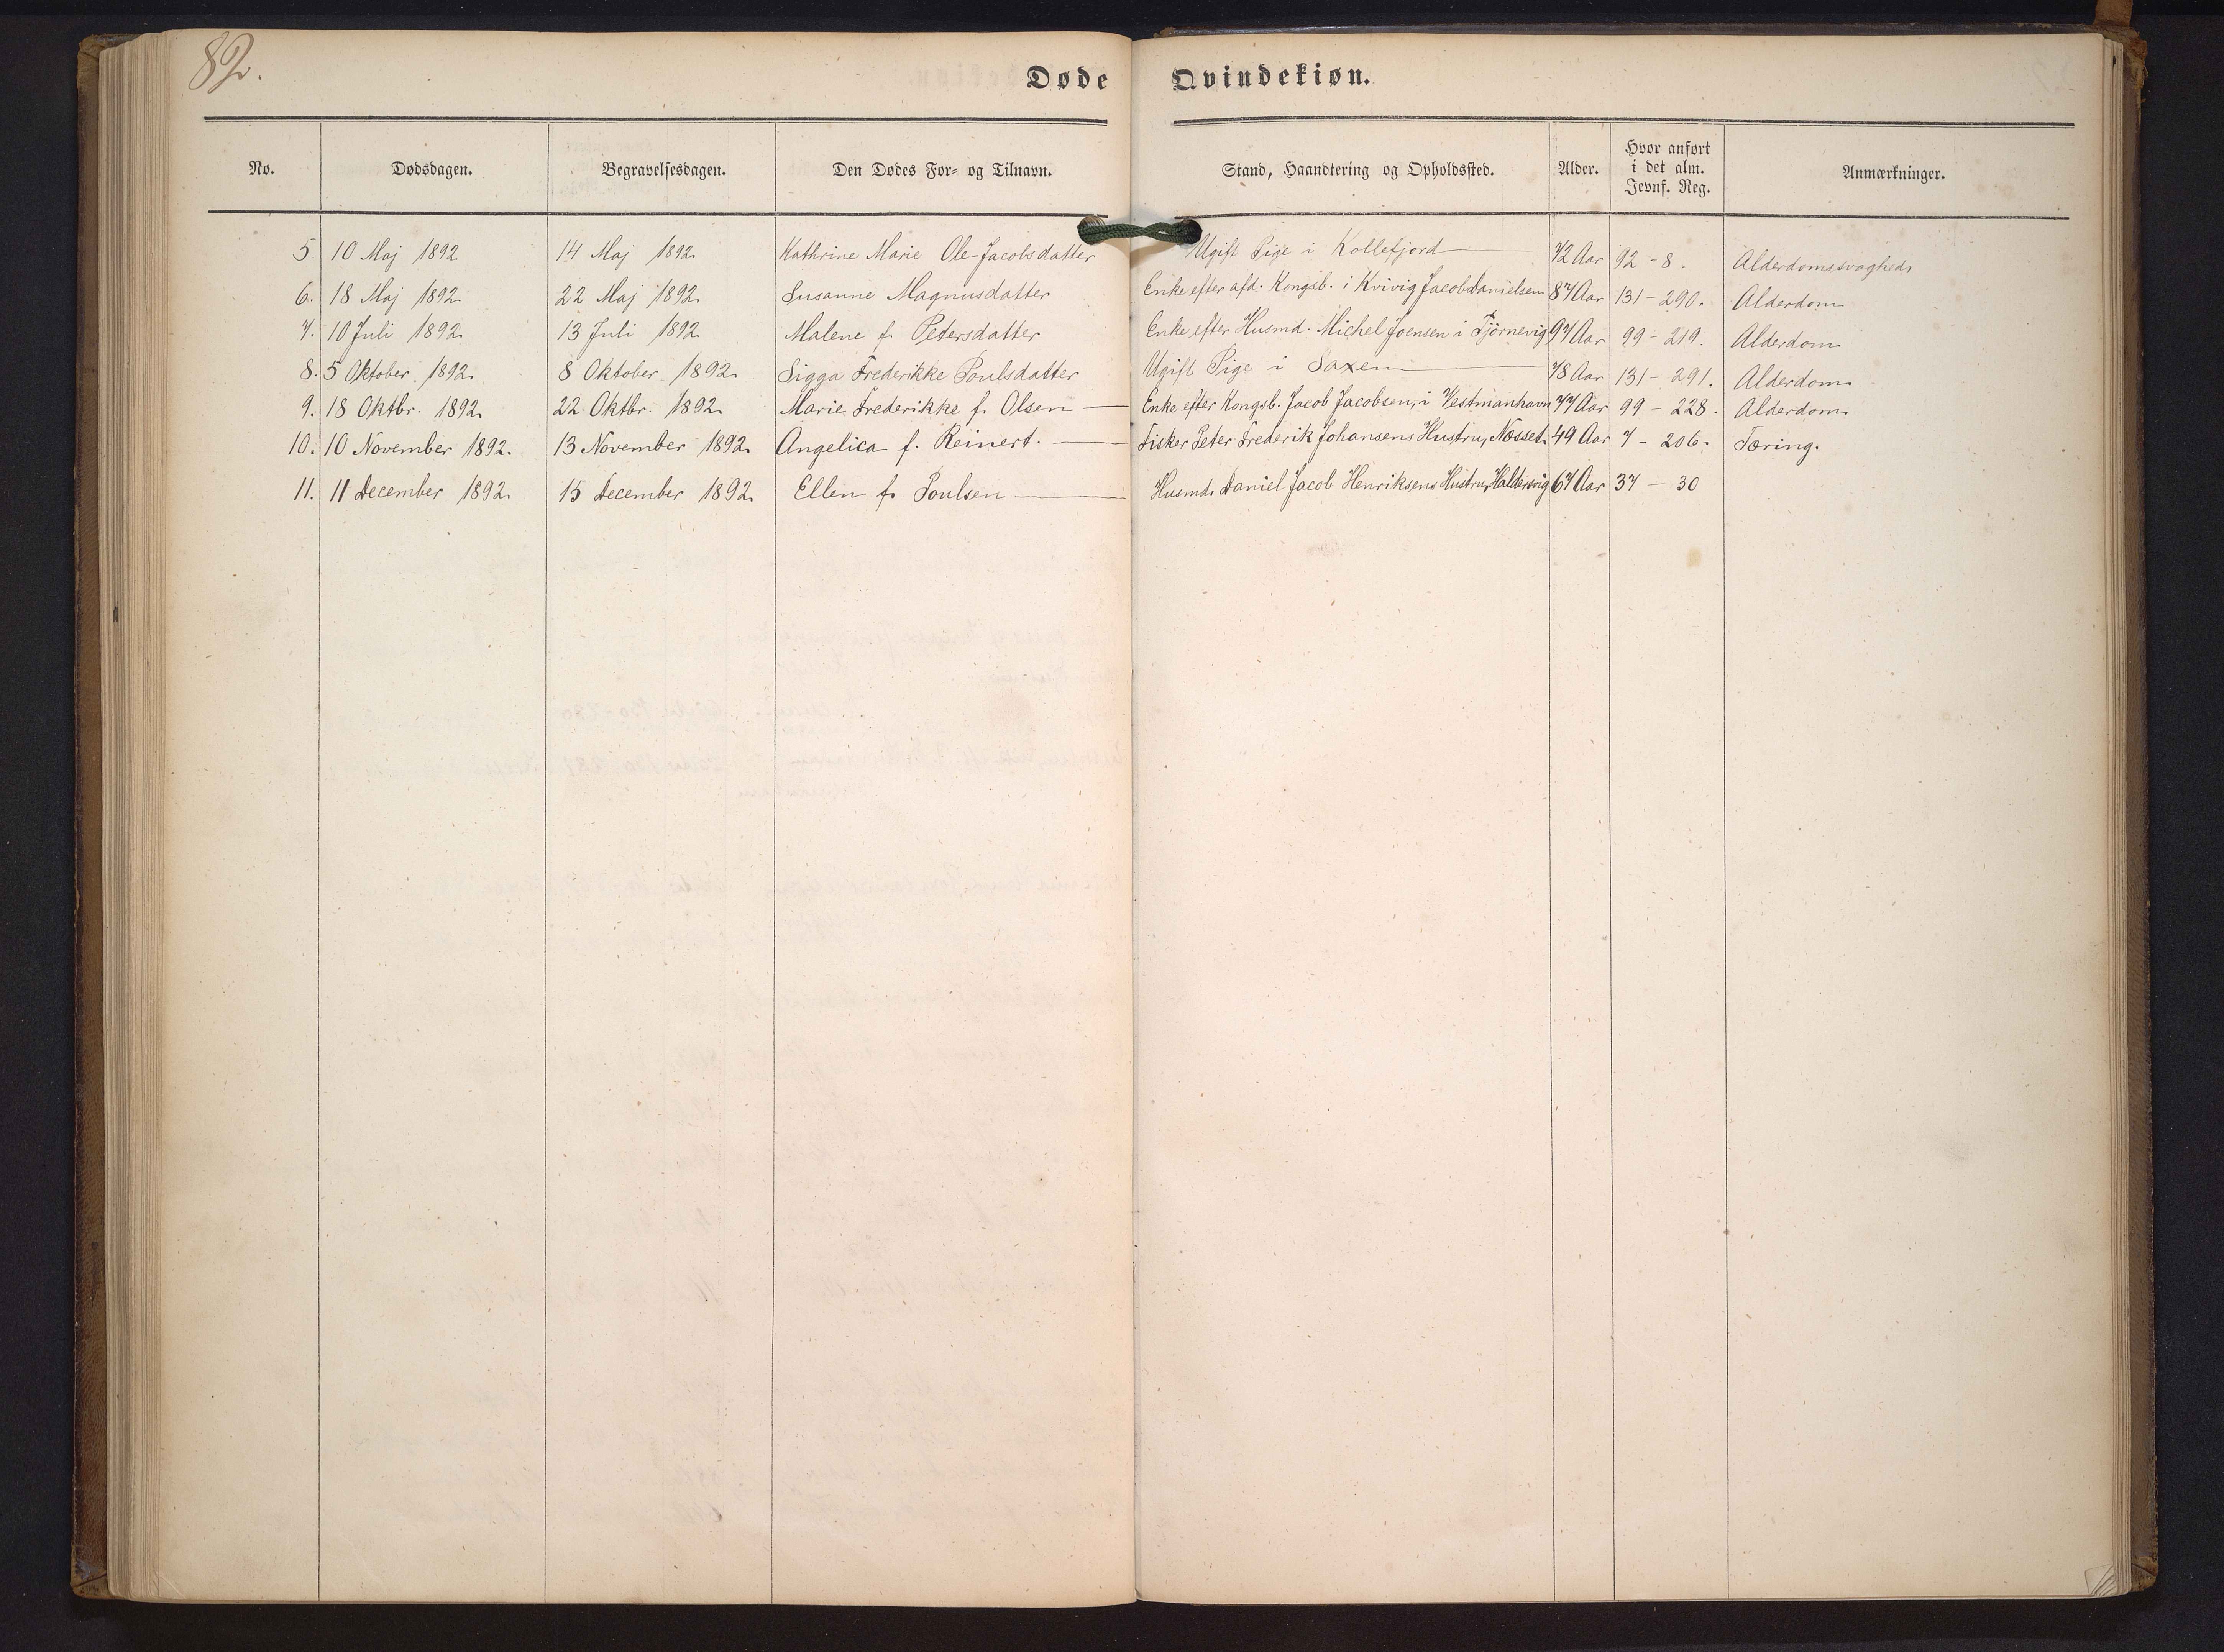 82.
Døde Qvindekiøn.
No. Dødsdagen. Begravelsesdagen. Den Dødes For- og Tilnavn. Stand, Haandtering og Opholdssted. Alder. Hvor anført i det alm. Jevnf. Reg. Anmærkninger.
5. 10 Maj 1892 14 Maj 1892. Kathrine Marie Ole-Jacobsdatter Ugift Pige i Kollefjord 72 Aar 92 - 8. Alderdomssvaghed.
6. 18 Maj 1892. 22 Maj 1892. Susanne Magnusdatter Enke efter afd. Kongsb. i Kvivig Jacob Danielsen 87 Aar 131 - 290. Alderdom
7. 10 Juli 1892. 13 Juli 1892. Malene f. Petersdatter Enke efter Husmd. Michel Joensen i Tjörnevig 97 Aar 99 - 219. Alderdom
8. 5 Oktober 1892. 8 Oktober 1892. Sigga Frederikke Poulsdatter Ugift Pige i Saxen 78 Aar 131 - 291. Alderdom.
9. 18 Oktbr. 1892. 22 Oktbr. 1892. Marie Frederikke f. Olsen Enke efter Kongsb. Jacob Jacobsen, i Vestmanhavn 77 Aar 99 - 228. Alderdom.
10. 10 November 1892. 13 November 1892. Angelica f. Reinert. Fisker Peter Frederik Johansens Hustru, Nesset. 49 Aar 7 - 206. Tæring.
11. 11 December 1892. 15 December 1892. Ellen f. Poulsen Husmd. Daniel Jacob Henriksens Hustru, Haldersvig 67 Aar 37 - 30